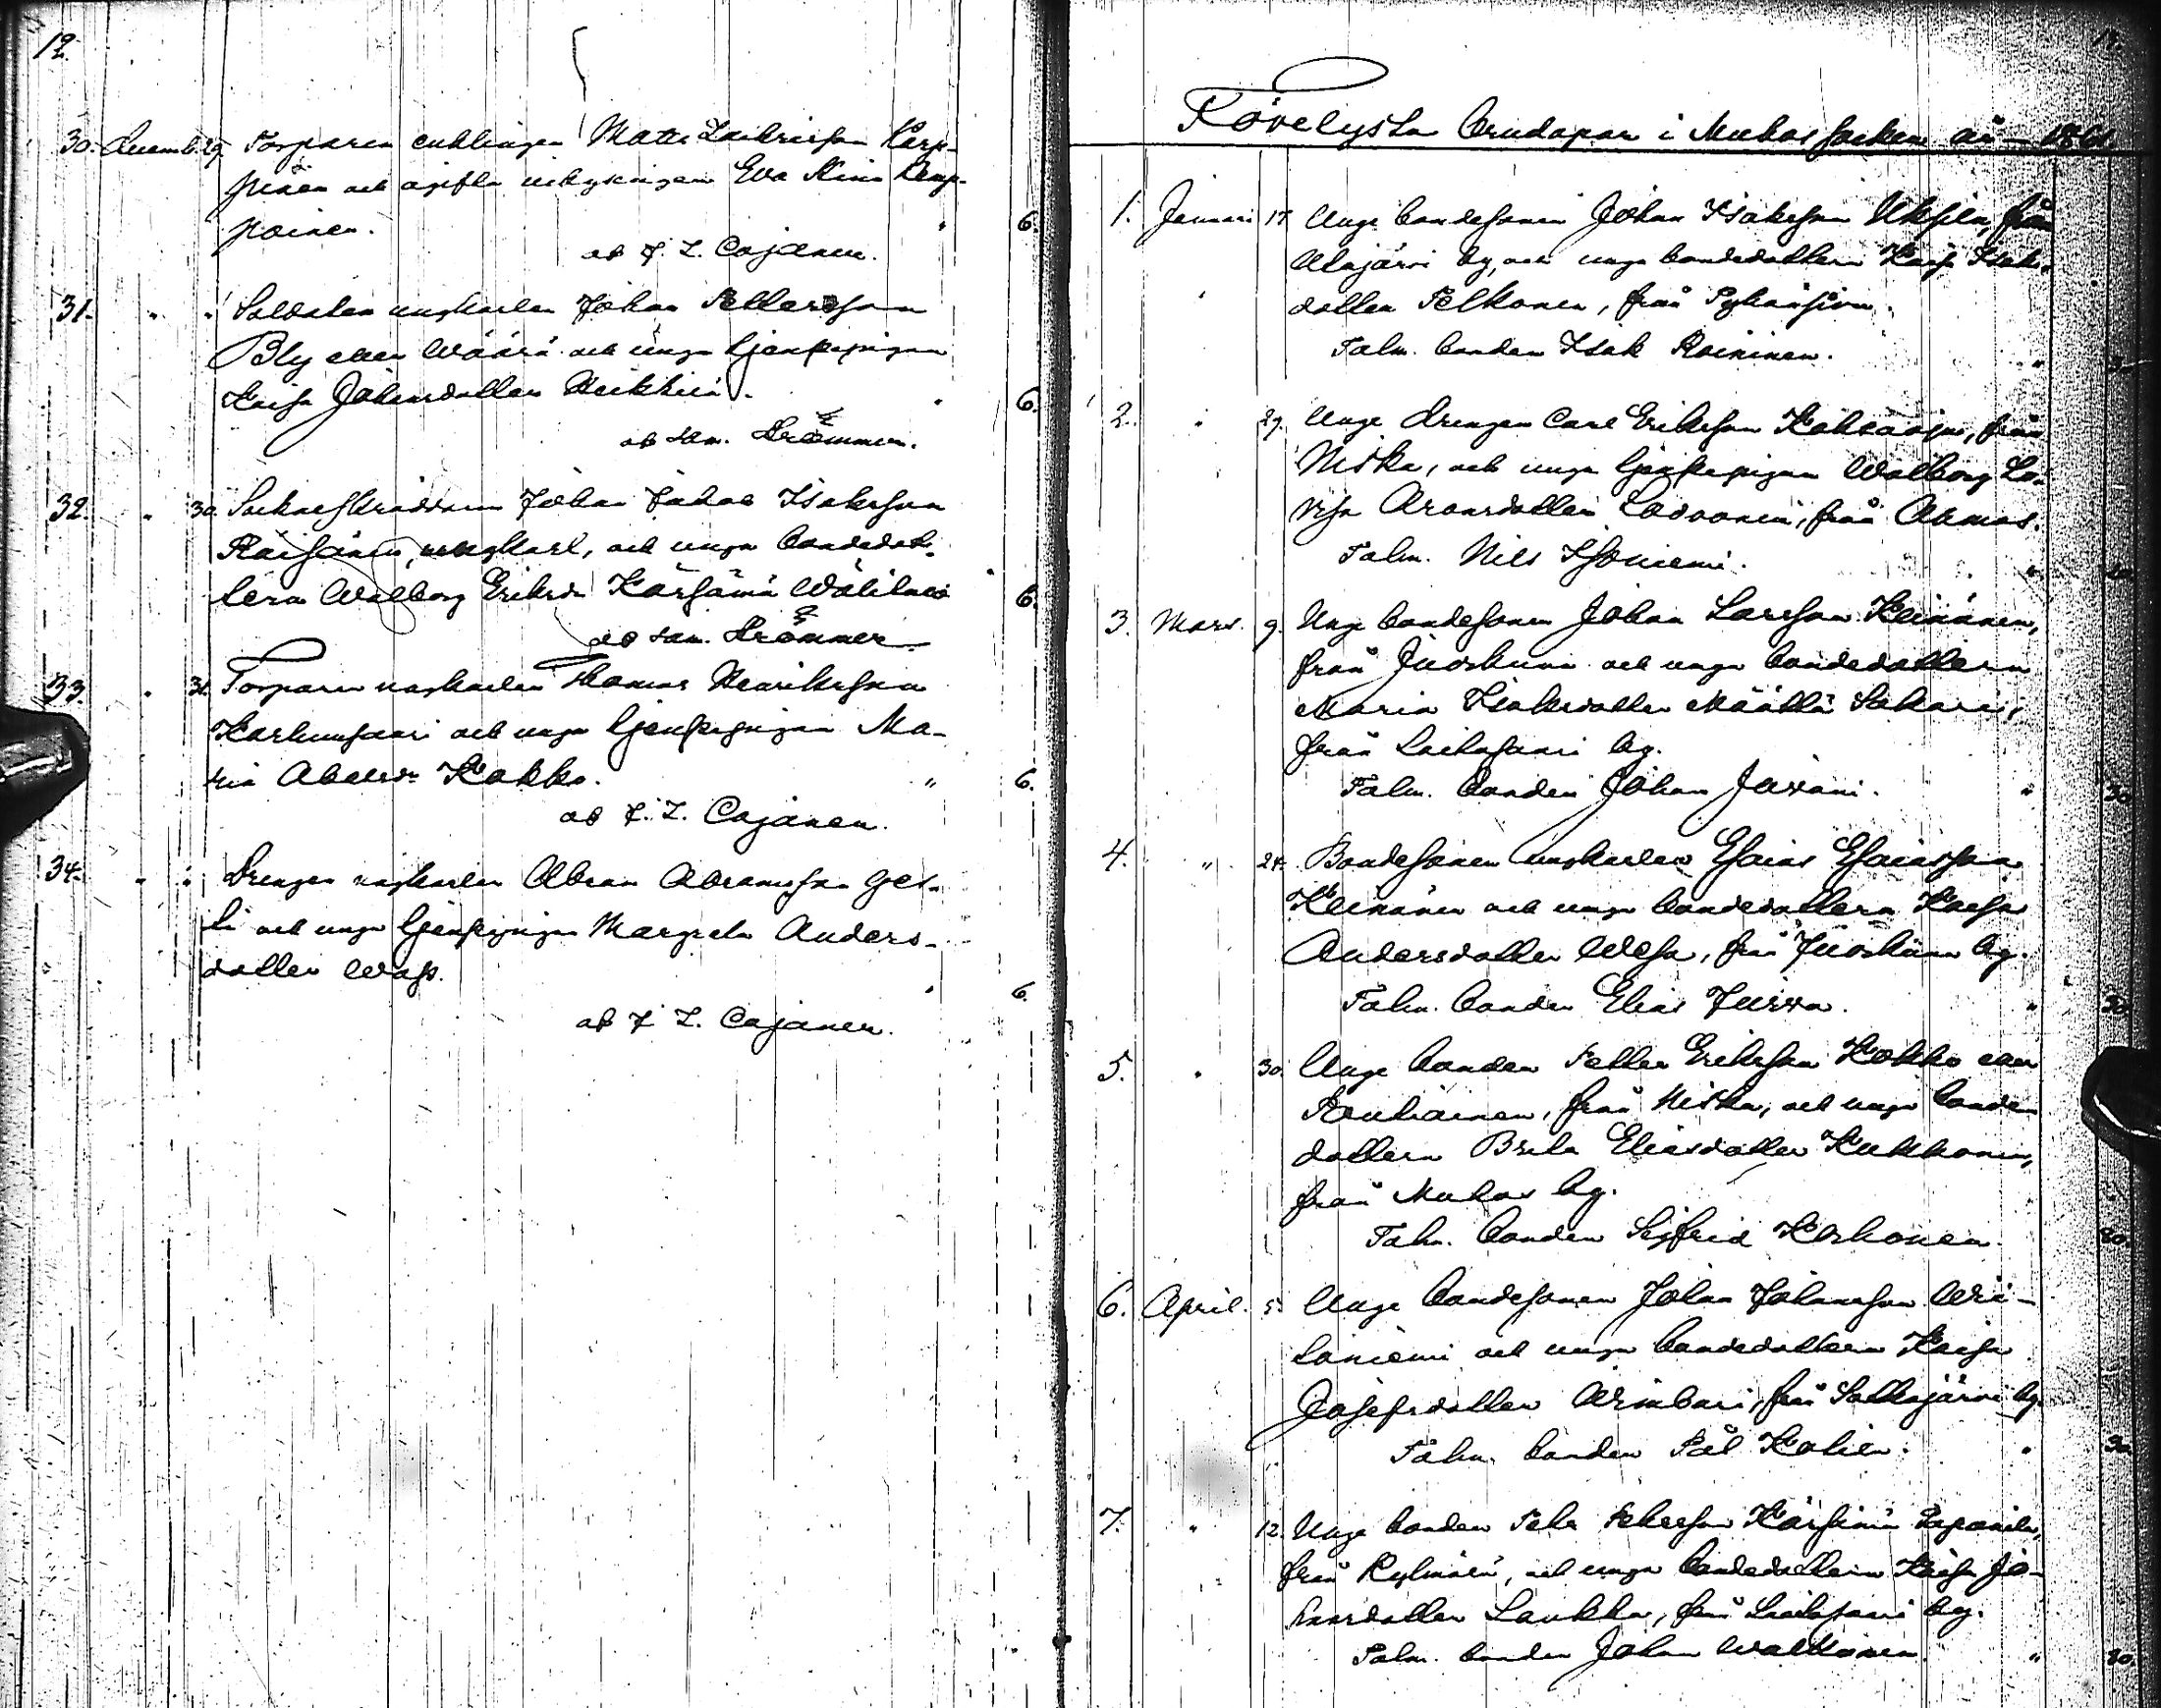 12.
30. Decemb. 29. Torparen enklingen Matts Henriksson Karp-
pinen och ogifta inhysingen Eva Stina Kemp-
painen. " 6.
af J. Z. Cajanen.
31. " " Soldaten ungkarlen Johan Pettersson
Bly eller Wäärä och unga tjenstepigan
Kaisa Johansdotter Heikkilä. " 6.
af Drömmer.
32. " 30. Johan Jakob Isaksson
Räisänen, ungkarl, och unga bondedot-
tern Walborg Eriksdr Kärsämä Wälitalo " 6.
af Drömmer
33. " 31. Torparen ungkarlen Thomas Henriksson
Karhunsaari och unga tjenstepigan Ma-
ria Abelsdr Kokko. " 6.
af J. Z. Cajanen.
34. " " Drengen ungkarlen Abram Abramsson
och unga tjenstepigan Margreta Anders-
dotter Wass. " 6.
af J. Z. Cajanen.
Förelysta brudapar i Muhos socken år 1861.
1. Januari 17. Unge bondesonen Johan Isaksson från
Alajärvi by, och unga bondedottern Kaisa Isaks-
dotter Pelkonen, från
Talm. bonden Isak Roininen. "
2. " 29. Unge drengen Carl Eriksson från
Niska, och unga tjenstepigan Walborg Lo-
visa Aronsdotter från Ahmas.
Talm. Nils Isoniemi. "
3. Mars. 9. Unge bondesonen Johan Larsson Keinänen,
från Juorkuna och unga bondedottern
Maria Isaksdotter Määttä Sakari,
från Laitasaari by.
Talm. bonden Johan " 30
4. " 24. Bondesonen ungkarlen Esaias Esaiasson
Keinänen och unga bondedottern Kaisa
Andersdotter Wesa, från Juorkuna by.
Talm. bonden Elias Jurva. " 30
5. " 30. Unge bonden Petter Eriksson Kokko eller
från Niska, och unga bonde-
dottern Brita Eliasdotter Kukkonen,
från Muhos by. "
Talm. bonden Sigfrid Korhonen. 20.
6. April. 5. Unge bondesonen Johan Johansson
och unga bondedottern Kaisa
Josefsdotter från by.
Talm. bonden Pål " 30
7. " 12. Unge bonden Pehr Pehrsson Kärsämä Papanila,
från Kylmälä, och unga bondedottern Kaisa Jo-
hansdotter Laukka, från Laitasaari by.
Talm. bonden Johan Walkonen. " 20.